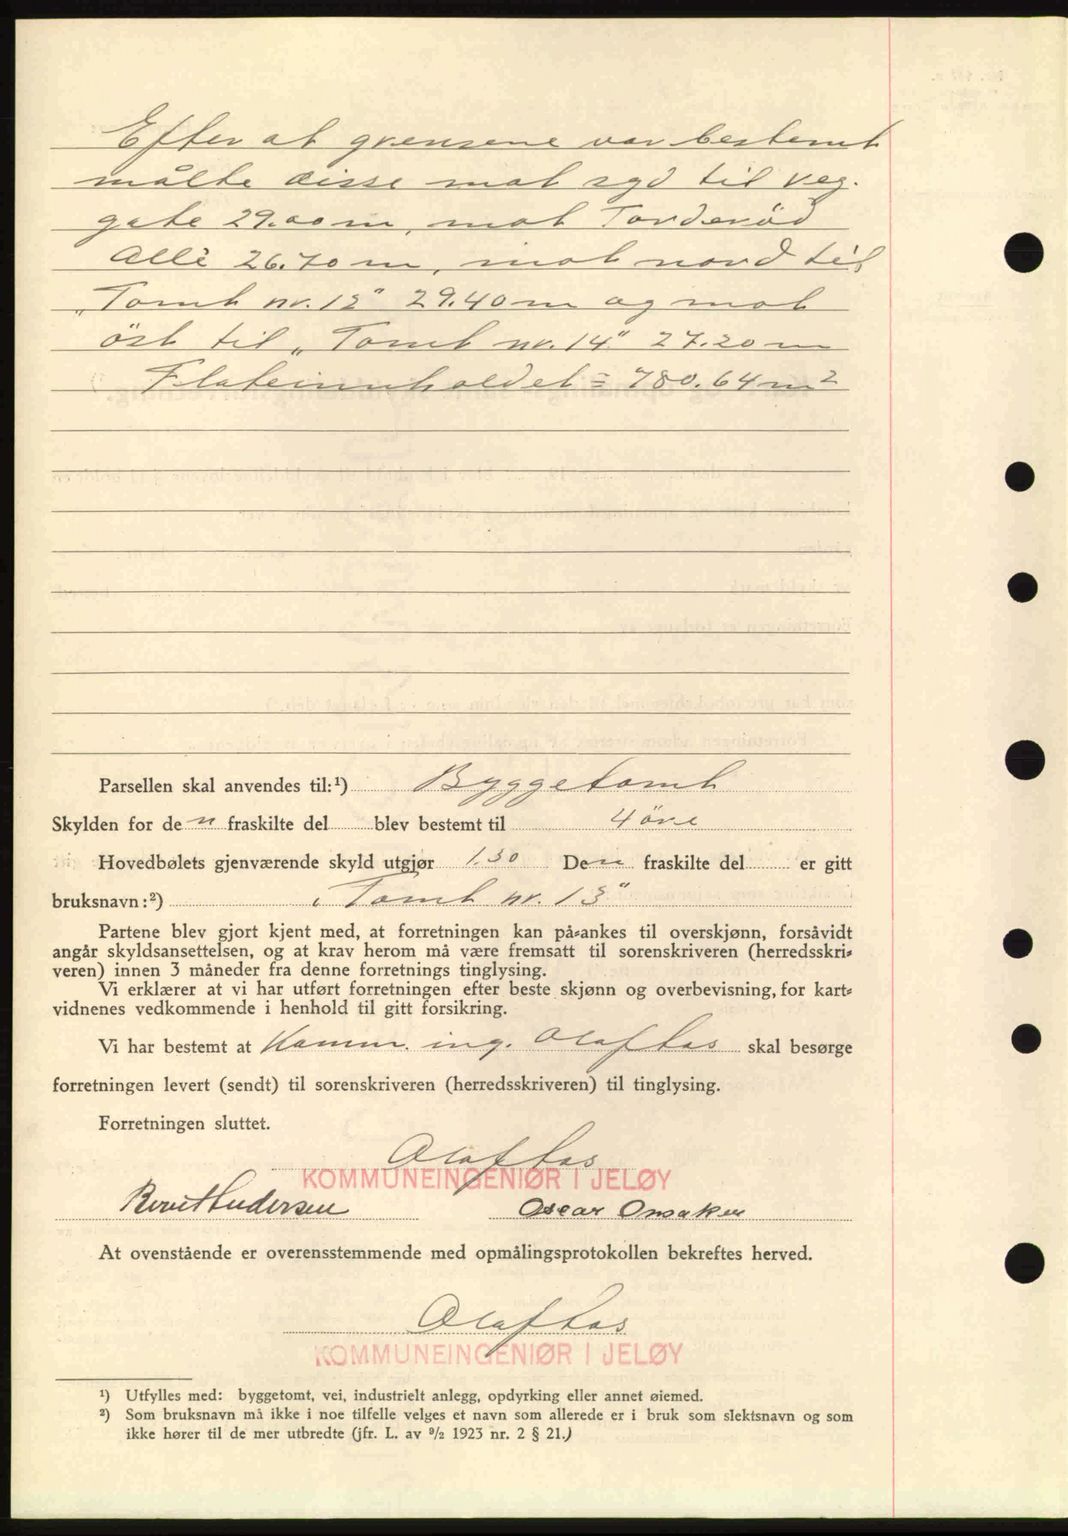 Efter at grensene var bestemt
målte disse mot syd til veg-
gate 29.00 m, mot Torderöd
Allè 26.70 m, mot nord til
"Tomt nr. 12" 29.40 m og mot
öst til "Tomt nr. 14" 27.20 m
Flateinnholdet = 780.64 m2
Parsellen skal anvendes til:¹) Byggetomt
Skylden for den fraskilte del blev bestemt til 4 öre
Hovedbølets gjenværende skyld utgjør 1.30 Den fraskilte del er gitt
bruksnavn:²) "Tomt nr. 13"
Partene blev gjort kjent med, at forretningen kan på-ankes til overskjønn, forsåvidt
angår skyldsansettelsen, og at krav herom må være fremsatt til sorenskriveren (herredsskri-
veren) innen 3 måneder fra denne forretnings tinglysing.
Vi erklærer at vi har utført forretningen efter beste skjønn og overbevisning, for kart-
vidnenes vedkommende i henhold til gitt forsikring.
Vi har bestemt at Komm. ing. Olaf Aas skal besørge
forretningen levert (sendt) til sorenskriveren (herredsskriveren) til tinglysing.
Forretningen sluttet.
Olaf Aas
KOMMUNEINGENIØR I JELØY
Bernt Andersen Oscar
At ovenstående er overensstemmende med opmålingsprotokollen bekreftes herved.
Olaf Aas
KOMMUNEINGENIØR I JELØY
¹) Utfylles med: byggetomt, vei, industrielt anlegg, opdyrking eller annet øiemed.
²) Som bruksnavn må ikke i noe tilfelle velges et navn som allerede er i bruk som slektsnavn og som
ikke hører til de mer utbredte (jfr. L. av 9/2 1923 nr. 2 § 21.)